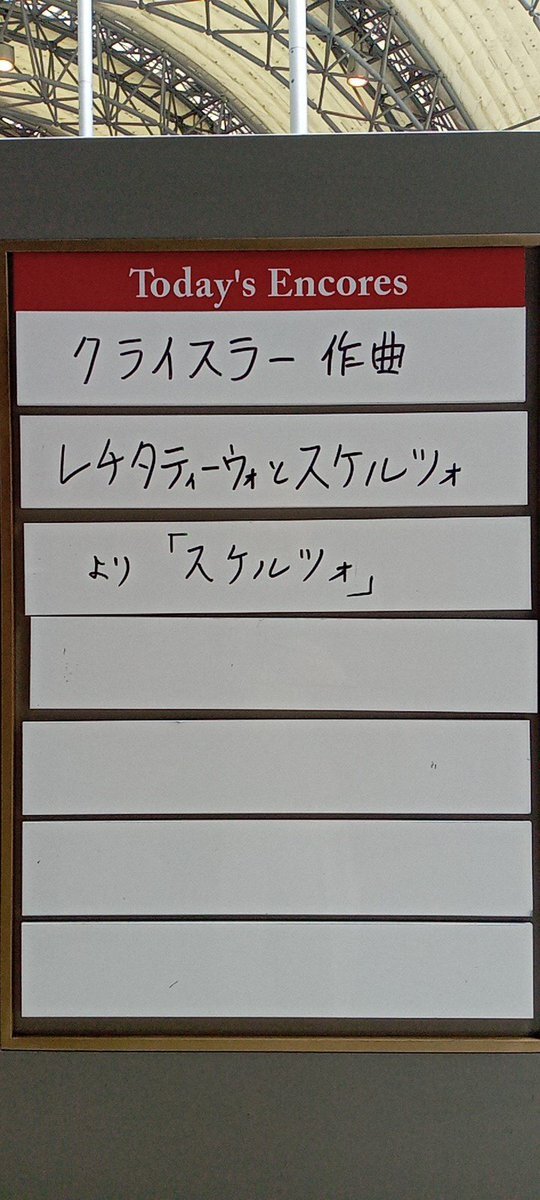 Today's Encores
クライスラー 作曲
レチタティーヴォとスケルツォ
より「スケルツォ」